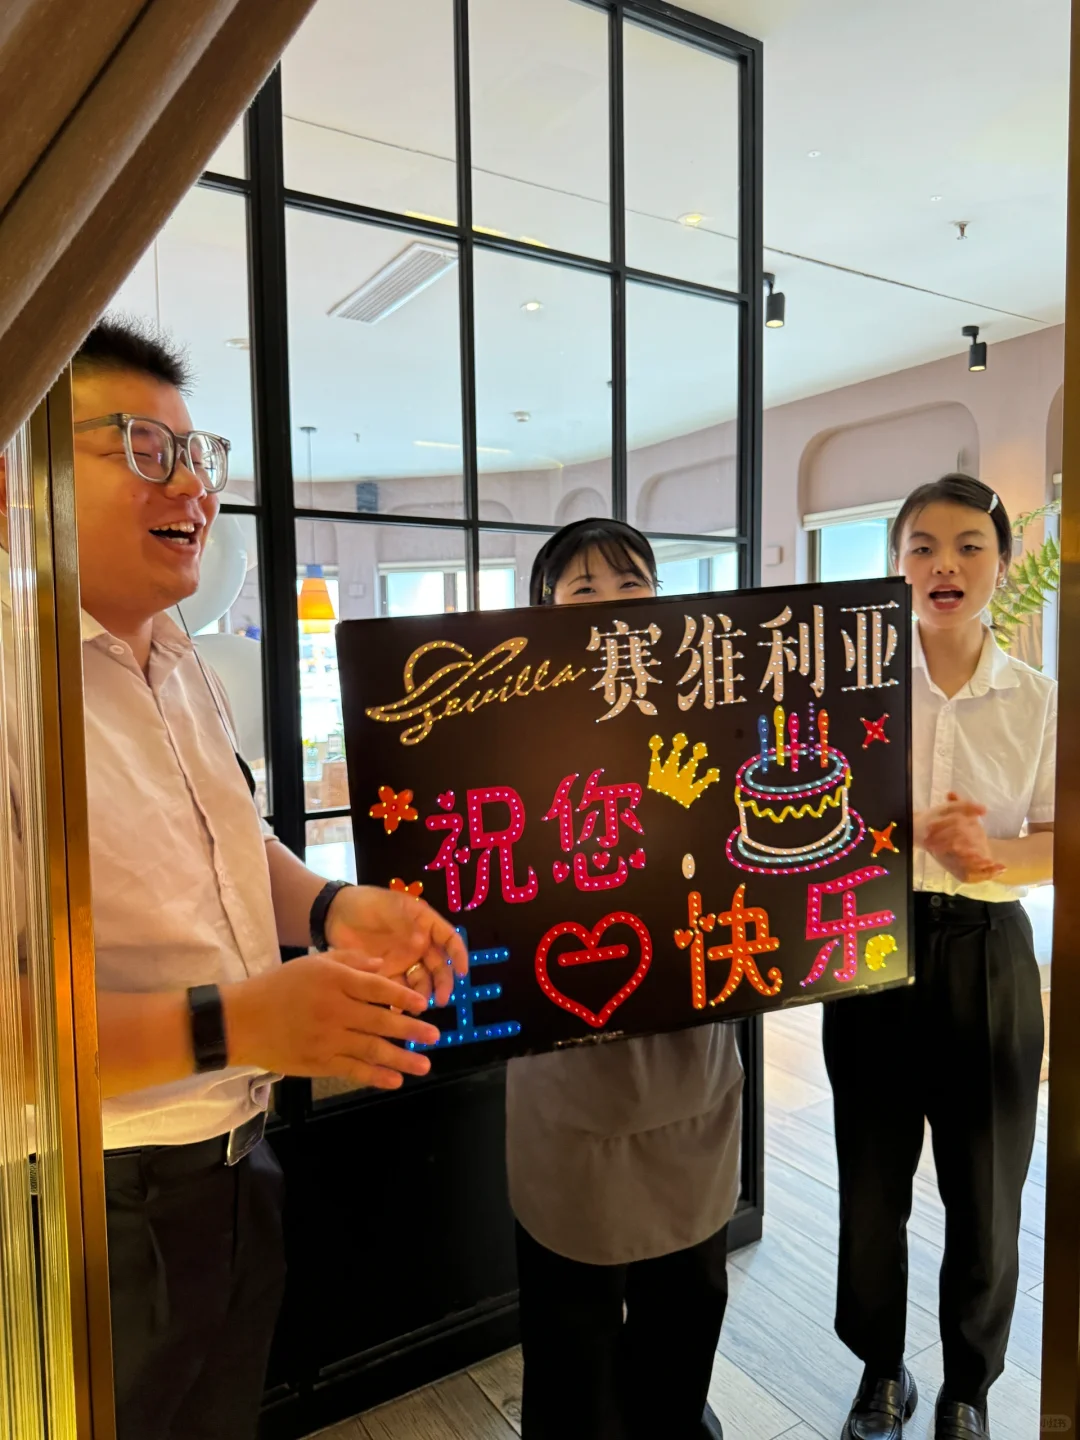 Sevilla 赛维利亚
祝您
生日快乐